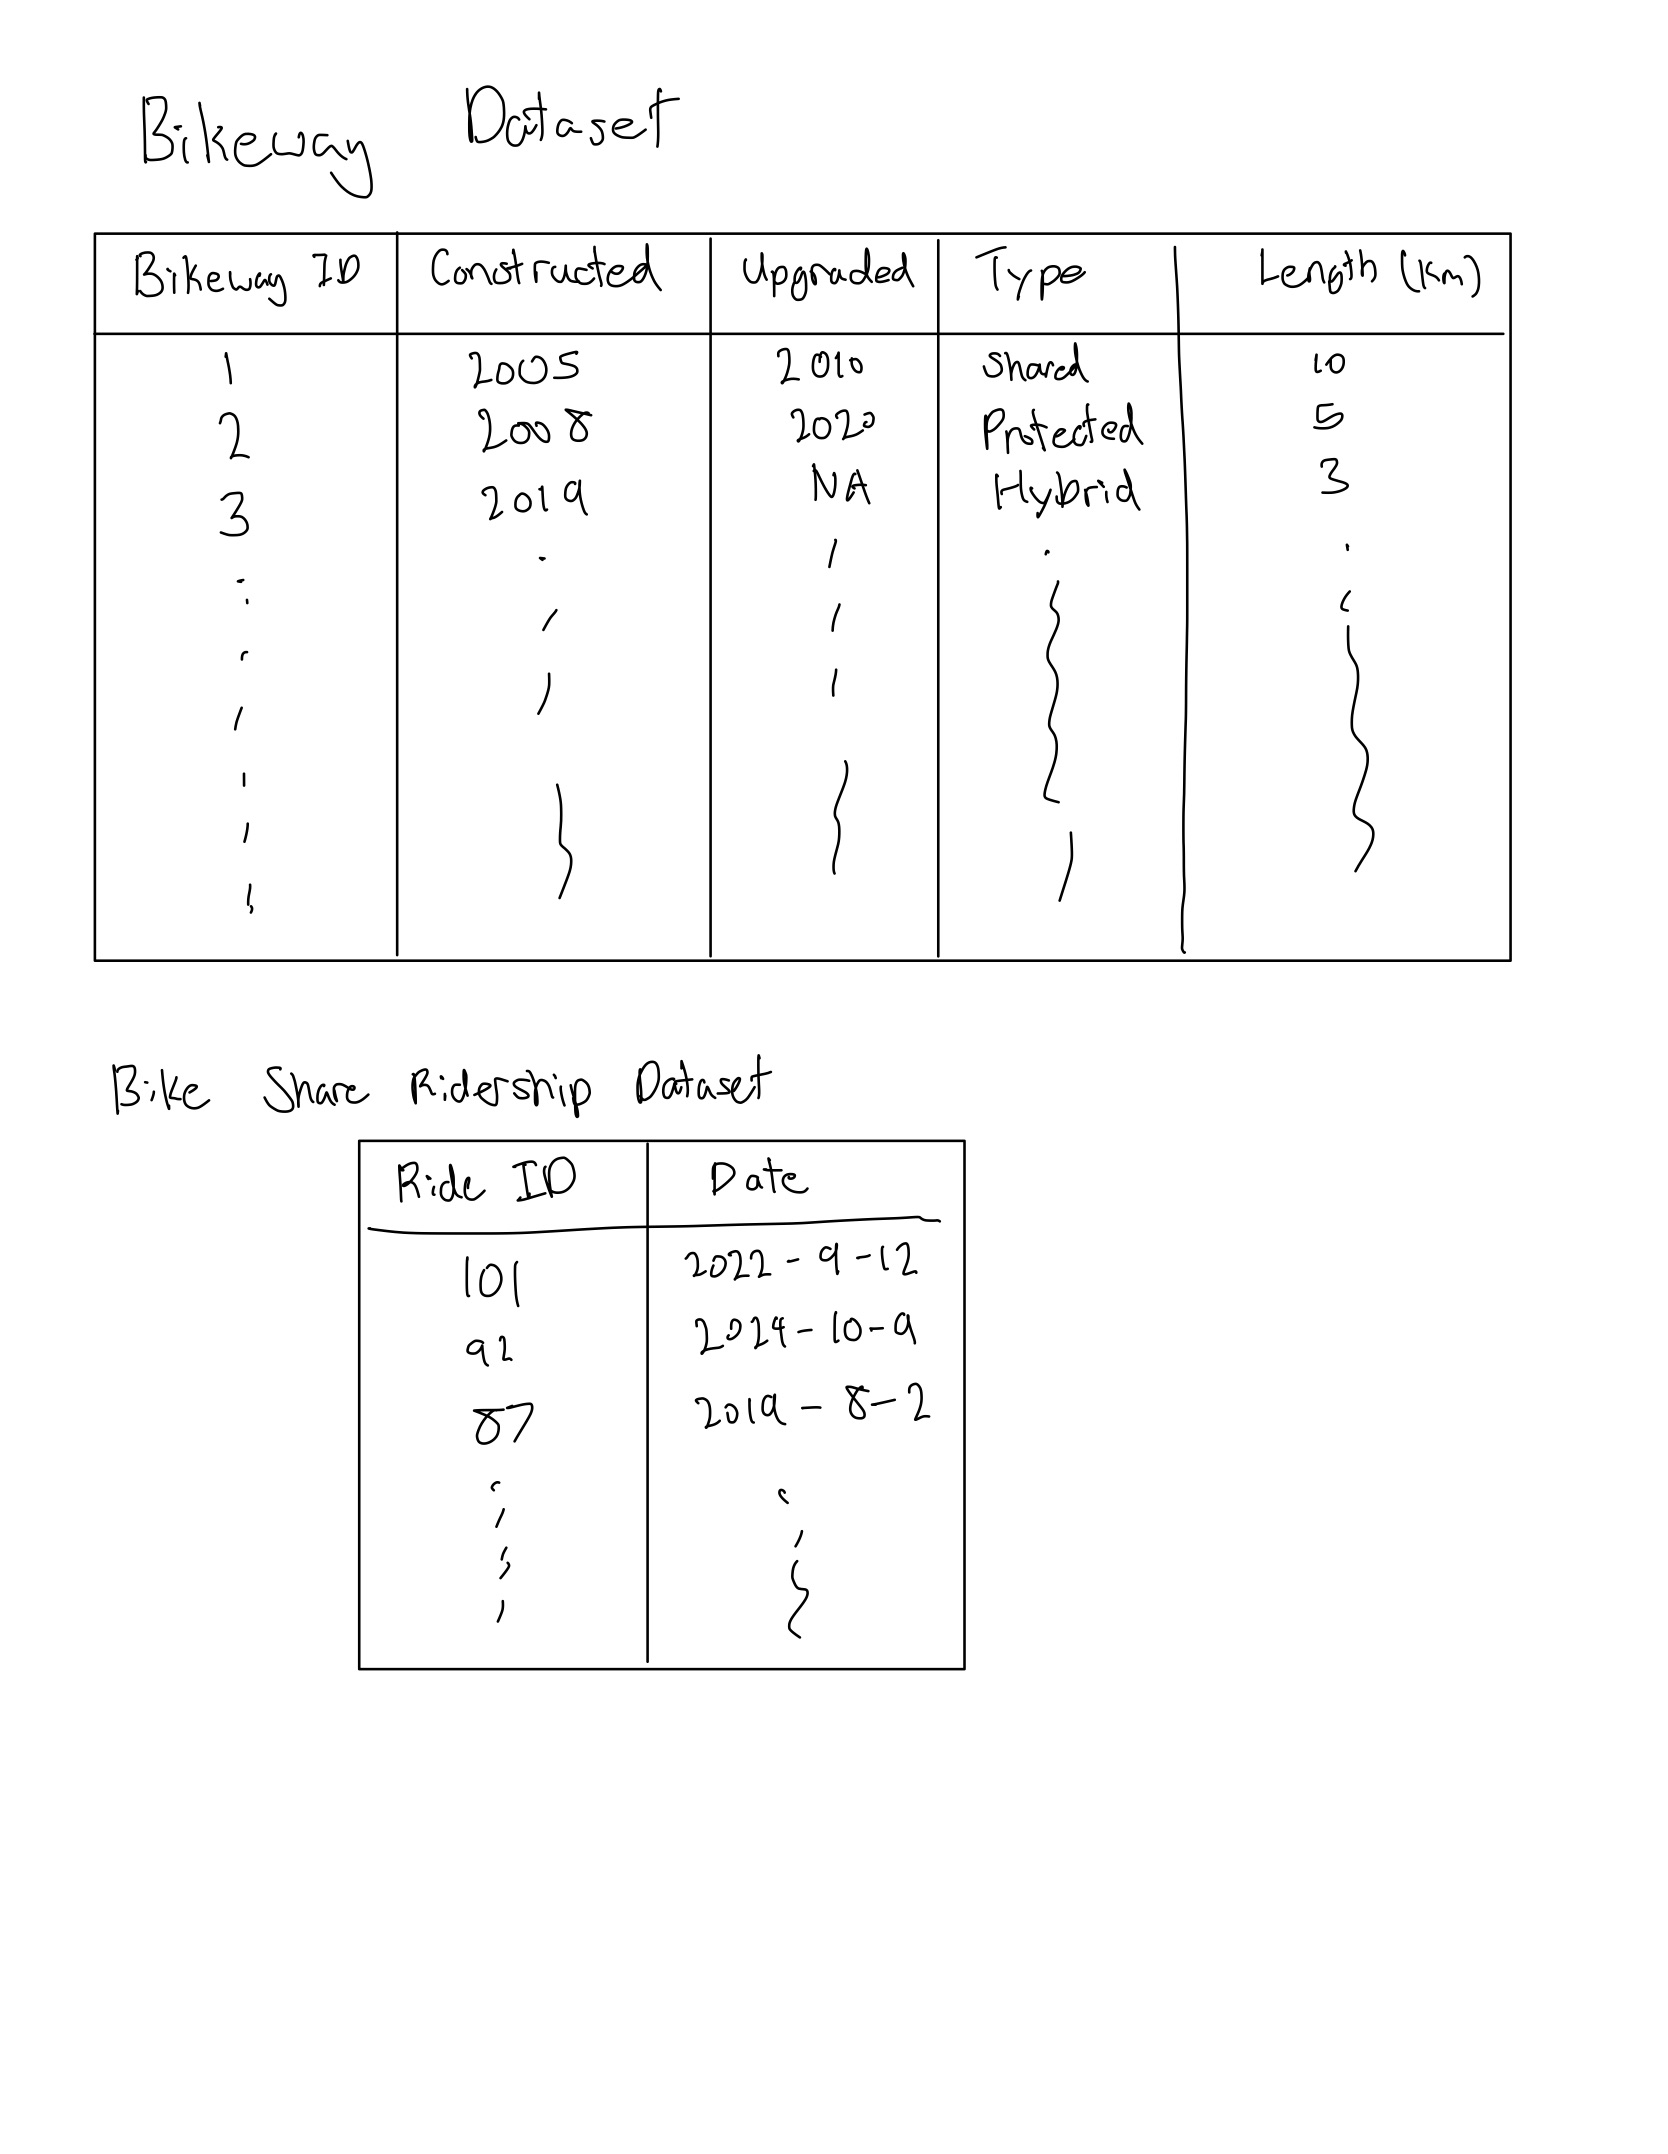 Bikeway Dataset
Bikeway ID Constructed Upgraded Type Length (Km)
1 2005 2010 Shared 10
2 2008 2020 Protected 5
3 2019 NA Hybrid 3
Bike Share Ridership Dataset
Ride ID Date
101 2022-9-12
92 2024-10-9
87 2019-8-2